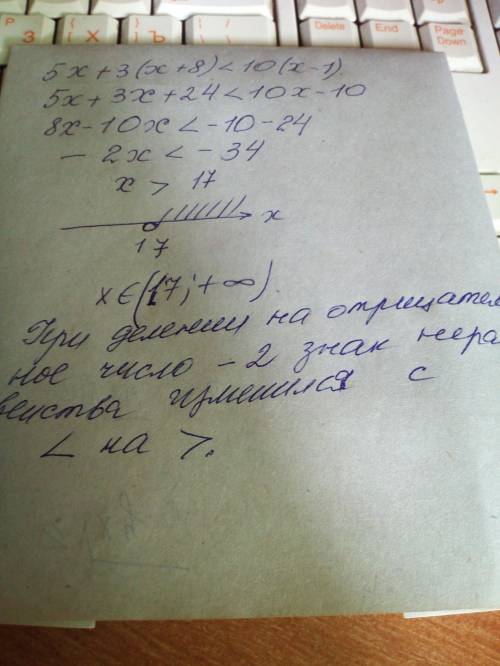 Delete
End
Page Down
Р З
{ Х [
} Ъ
5x+3(x+8)<10(x-1)
5x+3x+24<10x-10
8x-10x<-10-24
-2x<-34
x > 17
x
17
x∈(17;+∞)
При делении на отрицатель
ное число -2 знак нера
венства изменился с
< на >.